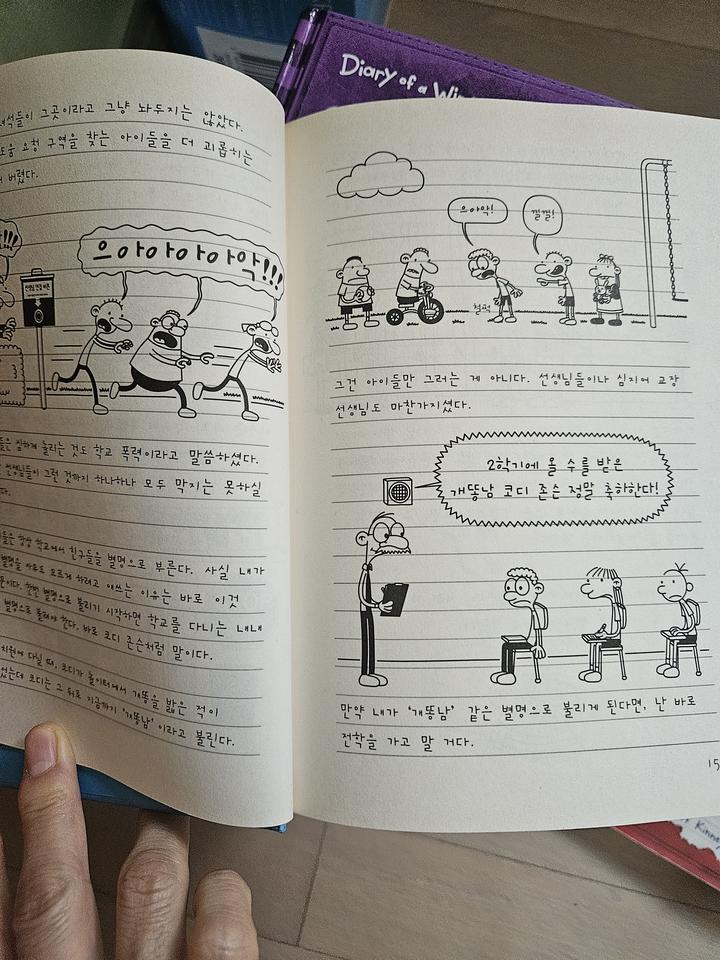 Diary of a
녀석들이 그곳이라고 그냥 놔두지는 않았다.
도움 요청 구역을 찾는 아이들을 더 괴롭히는
버렸다.
으아아아아아악!!!
것도 학교 폭력이라고 말씀하셨다.
선생님들이 그런 것까지 하나하나 모두 막지는 못하실
다.
항상 학교에서 친구들을 별명으로 부른다. 사실 내가
별명을 아무도 모르게 하려고 애쓰는 이유는 바로 이것
때문이다. 한번 별명으로 불리기 시작하면 학교를 다니는 내내
별명으로 불려야 한다. 바로 코디 존슨처럼 말이다.
다닐 때, 코디가 놀이터에서 개똥을 밟은 적이
있었는데 코디는 그 뒤로 지금까지 '개똥남'이라고 불린다.
으아악!
낄낄!
철퍽
그건 아이들만 그러는 게 아니다. 선생님들이나 심지어 교장
선생님도 마찬가지셨다.
2학기에 올 수를 받은
개똥남 코디 존슨 정말 축하한다!
만약 내가 '개똥남' 같은 별명으로 불리게 된다면, 난 바로
전학을 가고 말 거다.
15